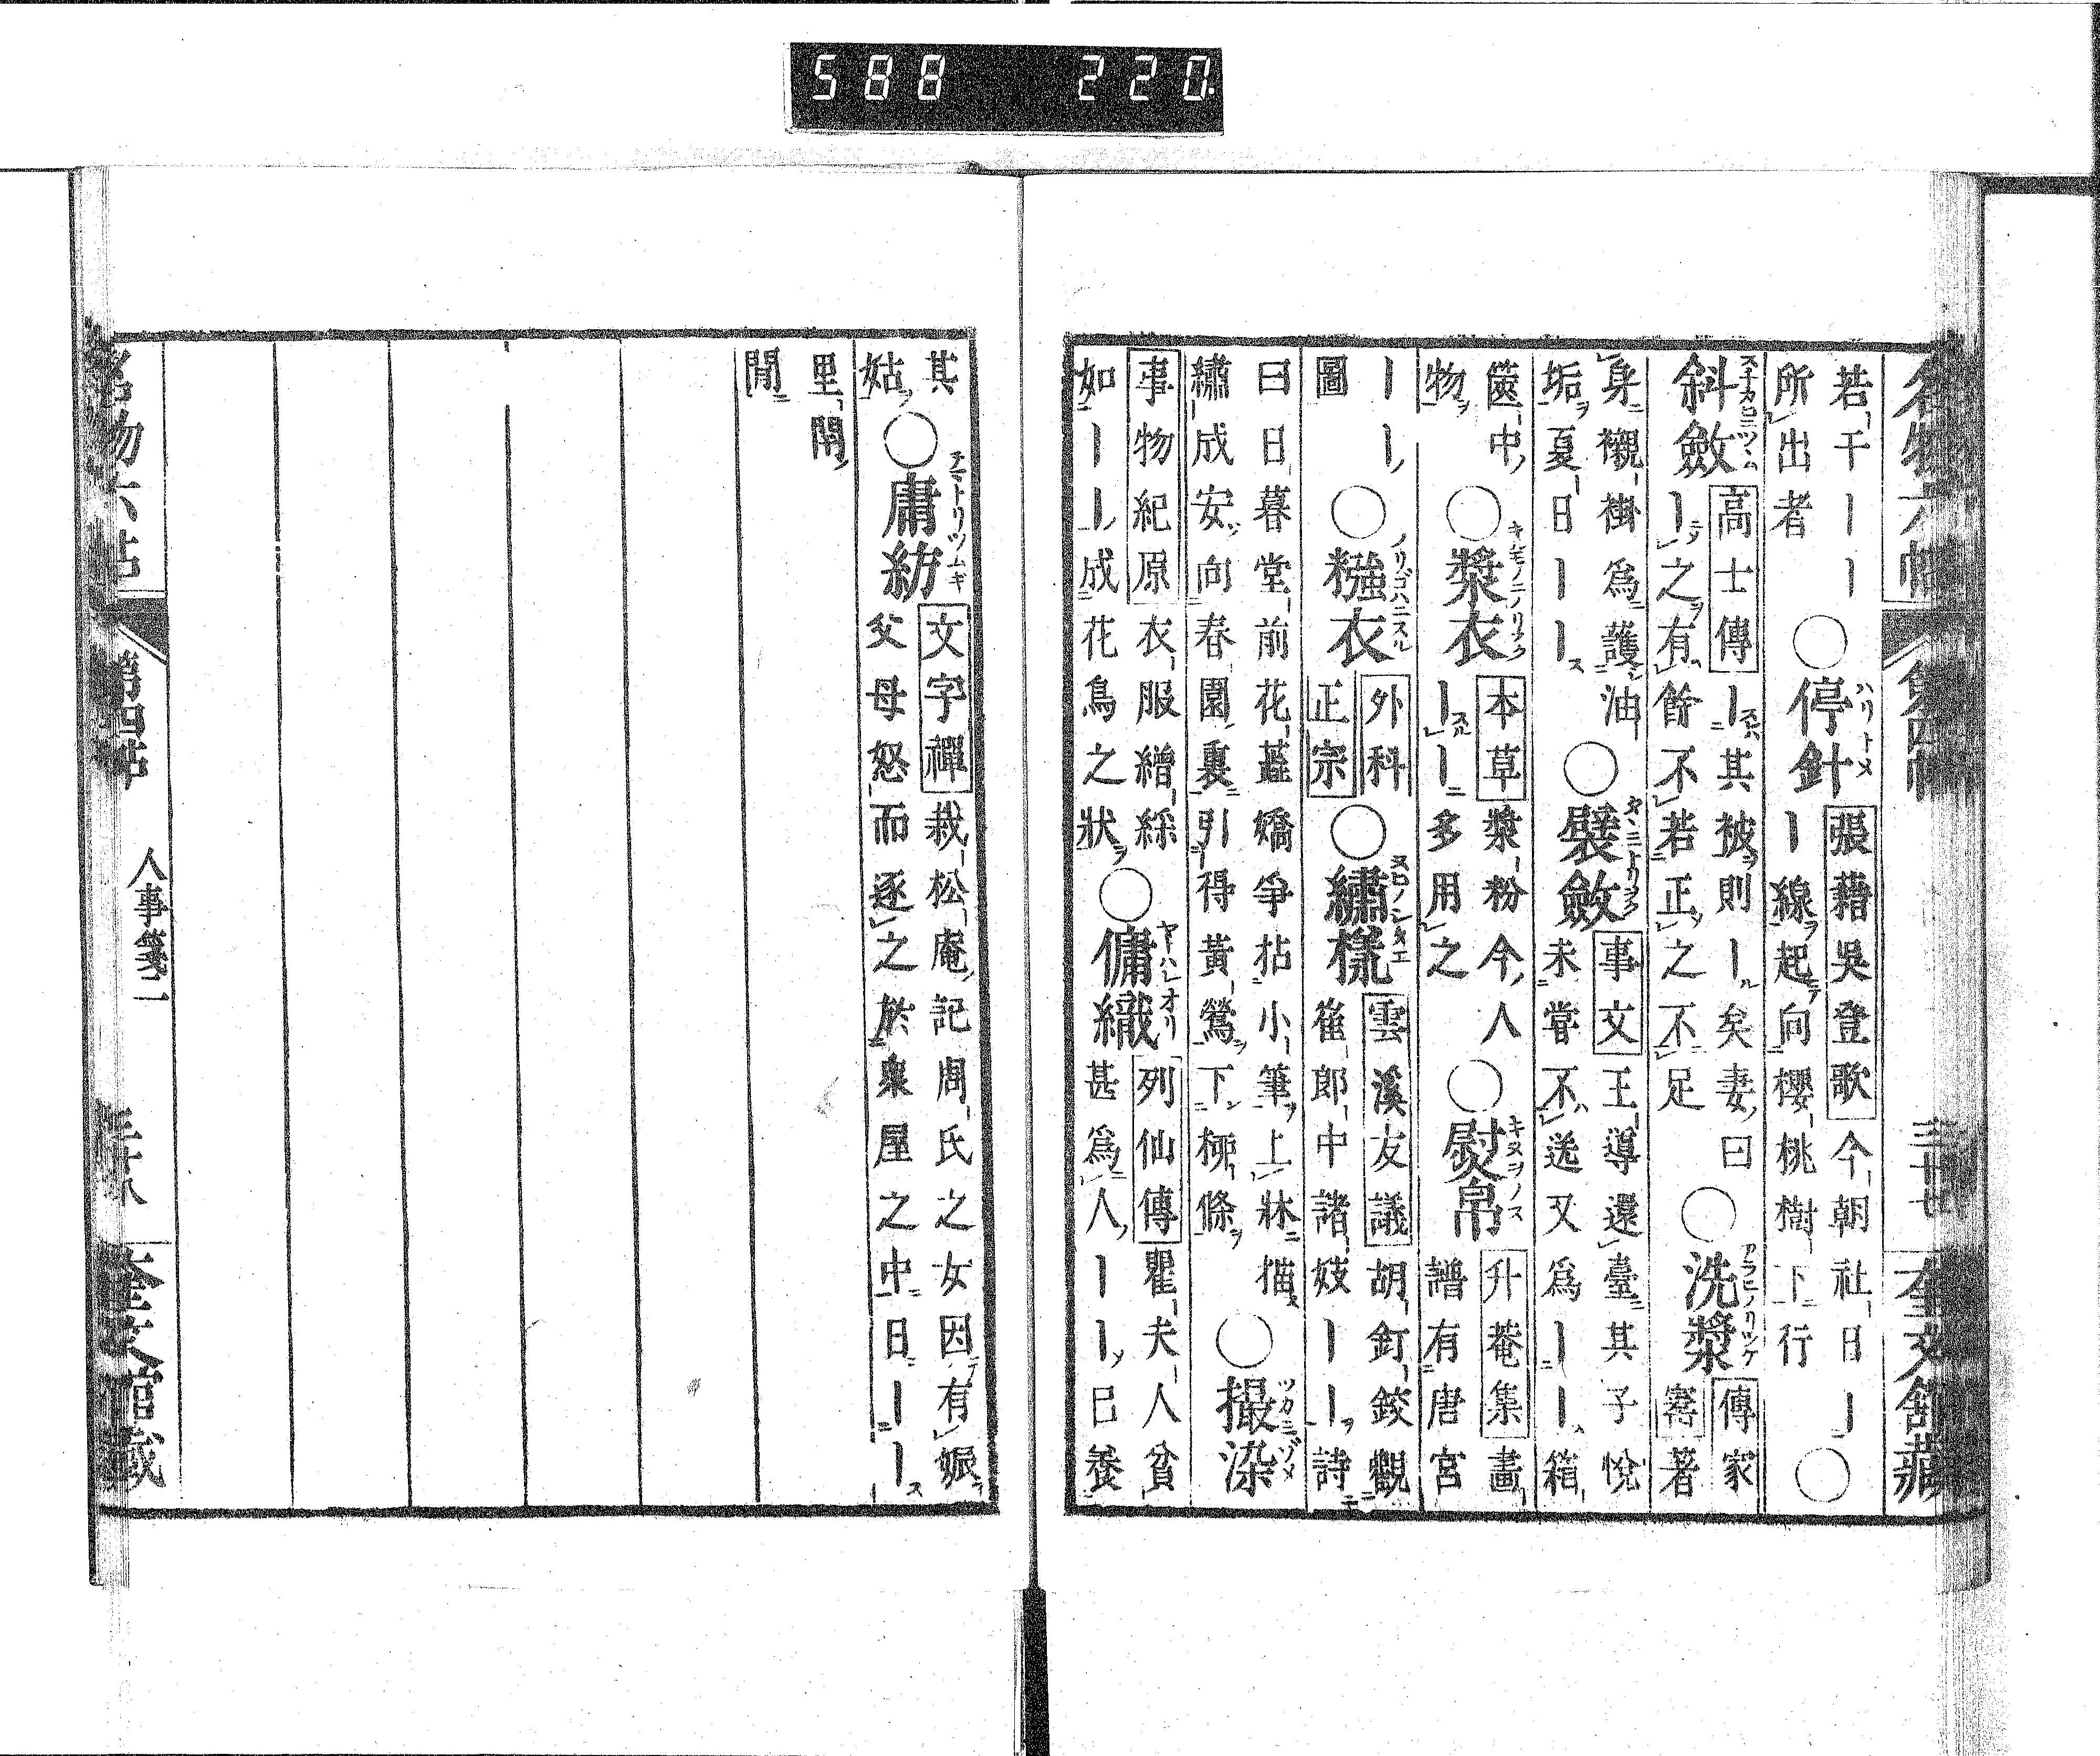 588 220.
名物六帖 第四帖 三十七 奎文館藏
若干ーー
所出者
○停針 ハリトメ
張藉吳登歌 今朝社日ー
ー線起向櫻桃樹下行
○
斜斂
高士傳 ース其被則ール矣妻曰
ーテ之有餘不若正之不足
○洗漿 アラヒノリツケ
傳家
寄著
身襯褂爲護油
垢夏日ーー
○襞斂
事文 王導還臺其子悅
未嘗不送又爲ーー箱
篋中
物
○漿衣
本草 漿粉今人
ーー多用之
○熨帛 キヌヲノス
升菴集 畵
譜有唐宮
ーー
圖
○糨衣
外科
正宗
○繡樣
雲溪友議 胡釘鉸觀
崔郎中諸妓ーー詩
曰日暮堂前花蕋嬌爭拈小筆上牀描
繡成安向春園裏引得黃鶯下柳條
○撮染 ツカミゾメ
事物紀原 衣服繒綵
如ーー成花鳥之狀
○傭織 ヤハレオリ
列仙傳 瞿夫人貧
甚爲人ーー巳養
其
姑
○庸紡
文字禪 栽松庵記周氏之女因有娠
父母怒而逐之於衆屋之中日ーー
里閈
閒
名物六帖 第四帖 人事箋二 三十八 奎文館藏